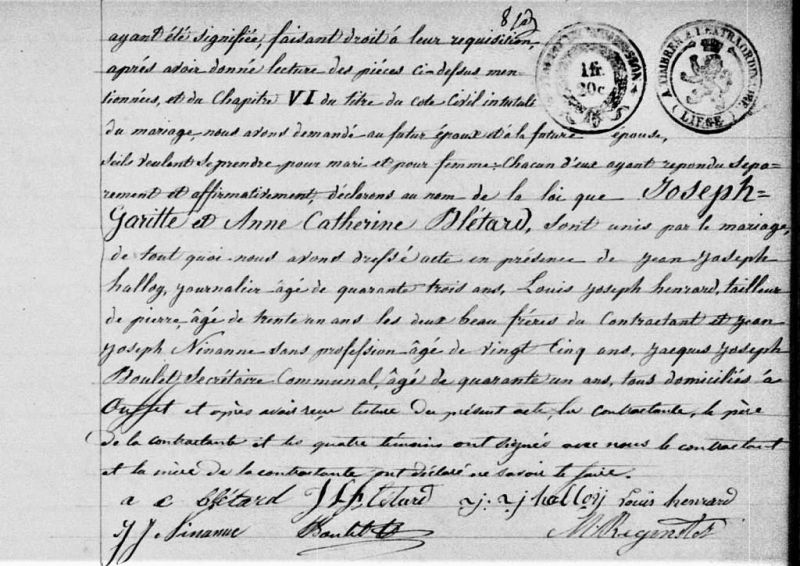 ayant été signifiée, faisant droit à leur requisition,
après avoir donné lecture des pièces ci-dessus men-
tionnées, et du Chapitre VI du titre du code Civil intitulé
du mariage, nous avons demandé au futur époux et à la future épouse,
s'ils veulent se prendre pour mari et pour femme: Chacun d'eux ayant repondu sepa-
rement et affirmativement, déclarons au nom de la loi que Joseph-
Garitte et Anne Catherine Blétard, sont unis par le mariage,
de tout quoi nous avons dressé acte en présence de Jean Joseph
halloy, journalier âgé de quarante trois ans, Louis Joseph henrard, tailleur
de pierre, âgé de trente un ans les deux beau frères du Contractant et Jean
Joseph Ninanne sans profession âgé de vingt Cinq ans, Jacques Joseph
Boulet Secrétaire Communal, âgé de quarante un ans, tous domiciliés à
Ouffet et après avoir reçu lecture du présent acte, la contractante, le père
de la contractante et les quatre témoins ont signés avec nous le contractant
et la mère de la contractante ont déclaré ne savoir le faire.
a c blétard J j halloy Louis henrard
J J Ninanne Boulet
1fr.
20c
A TIMBRER A L'EXTRAORDINAIRE
(LIEGE)